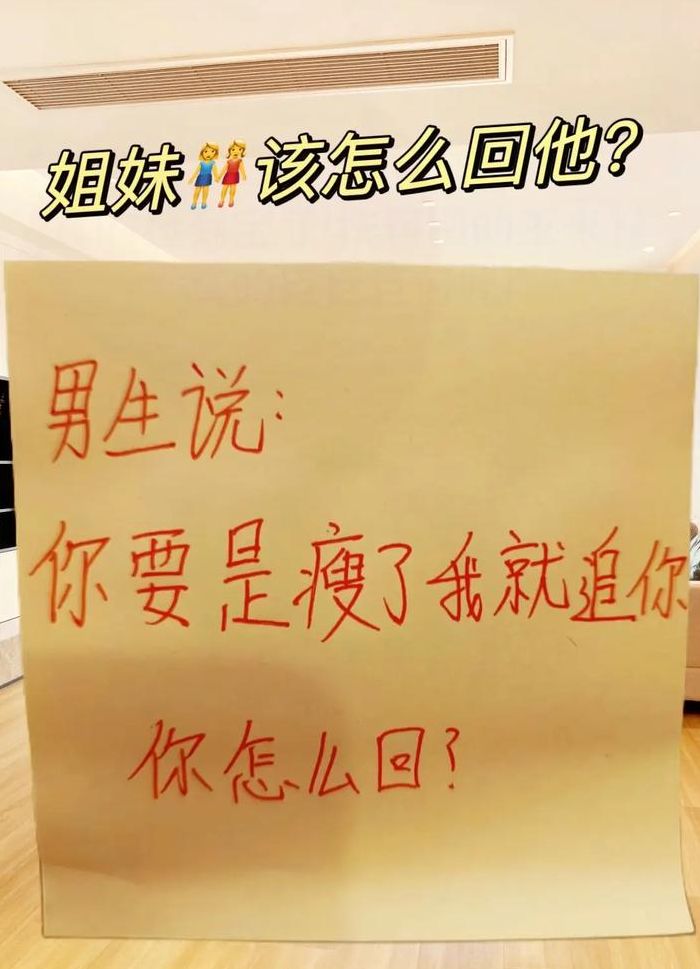 姐妹👭该怎么回他?
男生说:
你要是瘦了我就追你
你怎么回?